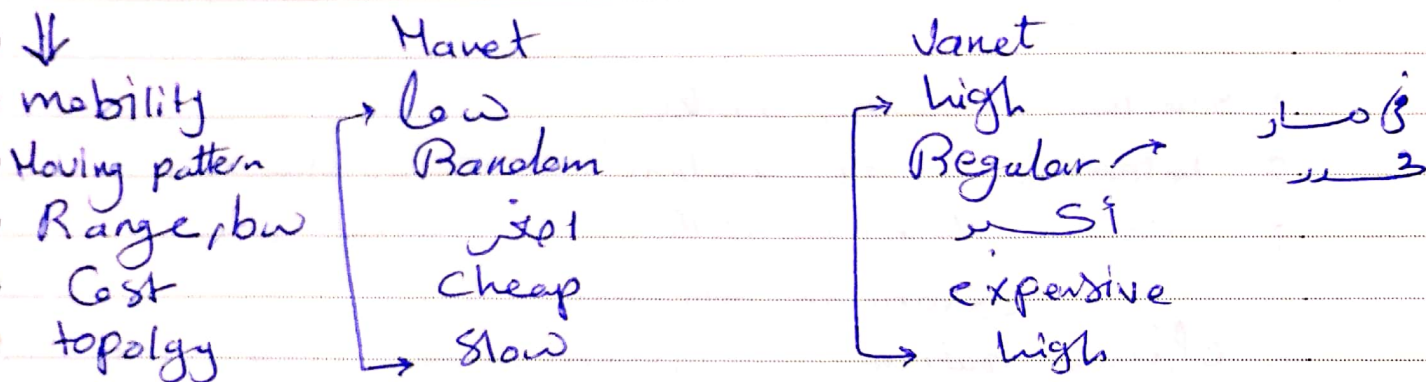 ⇓ Manet Vanet
mobility → low → high في مسار
Moving pattern Random Regular → محدد
Range, bw اصغر أكبر
Cost Cheap expensive
topolgy → slow → high